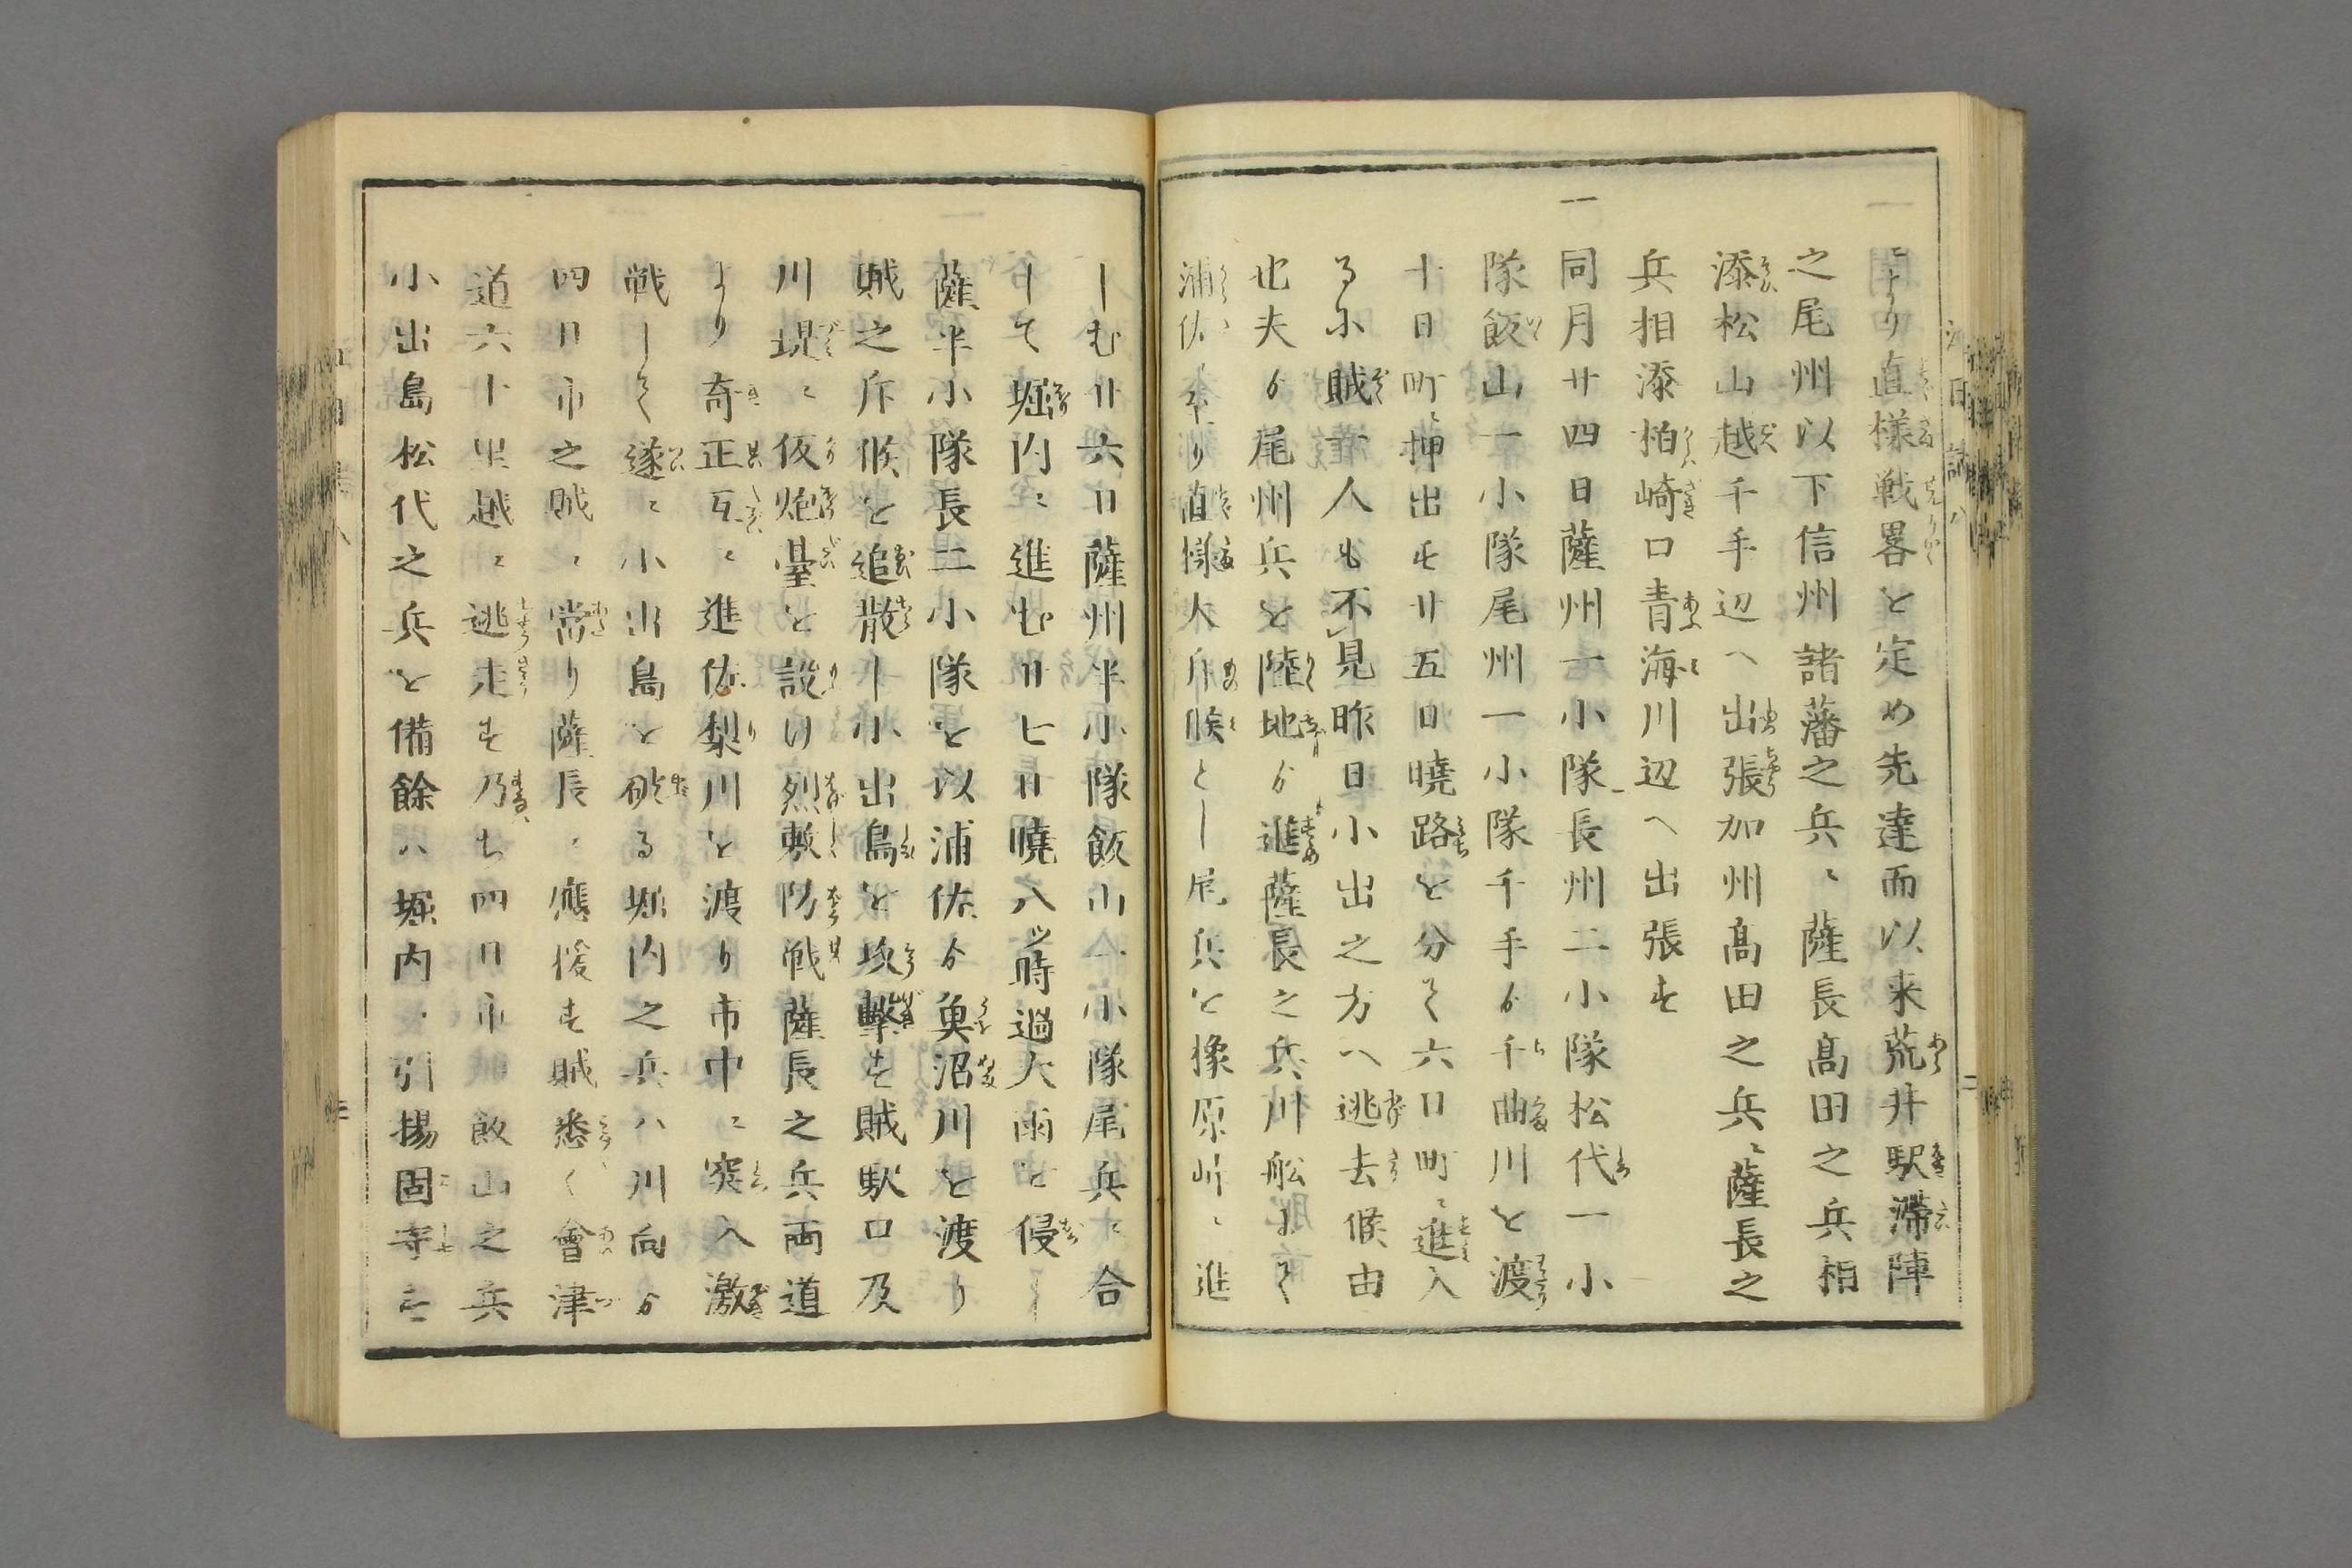 ニより直様戦畧を定め先達而以来荒井駅滞陣
之尾州以下信州諸藩之兵ニ薩長髙田之兵相
添松山越千手辺へ出張加州髙田之兵ニ薩長之
兵相添柏崎口青海川辺へ出張す
一同月廿四日薩州一小隊長州二小隊松代一小
隊飯山一小隊尾州一小隊千手ゟ千曲川を渡
十日町ニ押出す廿五日曉路を分て六日町ニ進入
る小賊一人も不見昨日小出之方へ逃去候由
也夫ゟ尾州兵を陸地ゟ進薩長之兵川船ニて
浦佐至り直様大斥候として尾兵を掾原峠ニ進
しむ廿六日薩州半小隊飯山一小隊尾兵ニ合
して堀内ニ進む廿七日曉八ツ時過大雨を侵し
薩半小隊長二小隊を以浦佐ゟ魚沼川を渡り
賊之斥候を追散し小出島を攻擊す賊駅口及
川堤ニ仮炮臺を設け烈敷防戦薩長之兵両道
より奇正互ニ進佐梨川を渡り市中ニ突入激
戦して遂ニ小出島を破る堀内之兵ハ川向ゟ
四日市之賊ニ當り薩長ニ應援す賊悉く會津
道六十里越ニ逃走す乃ち四日市ニ飯山之兵
小出島松代之兵を備餘ハ堀内ニ引揚固守す